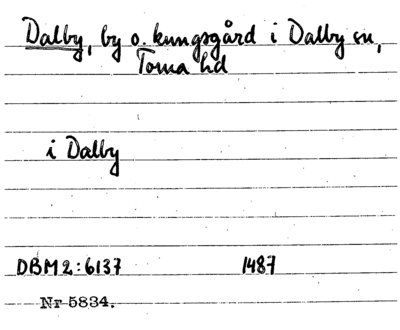 Dalby, by o. kungsgård i Dalby sn,
Torna hd
i Dalby
DBM2:6137 1487
Nr 5834.